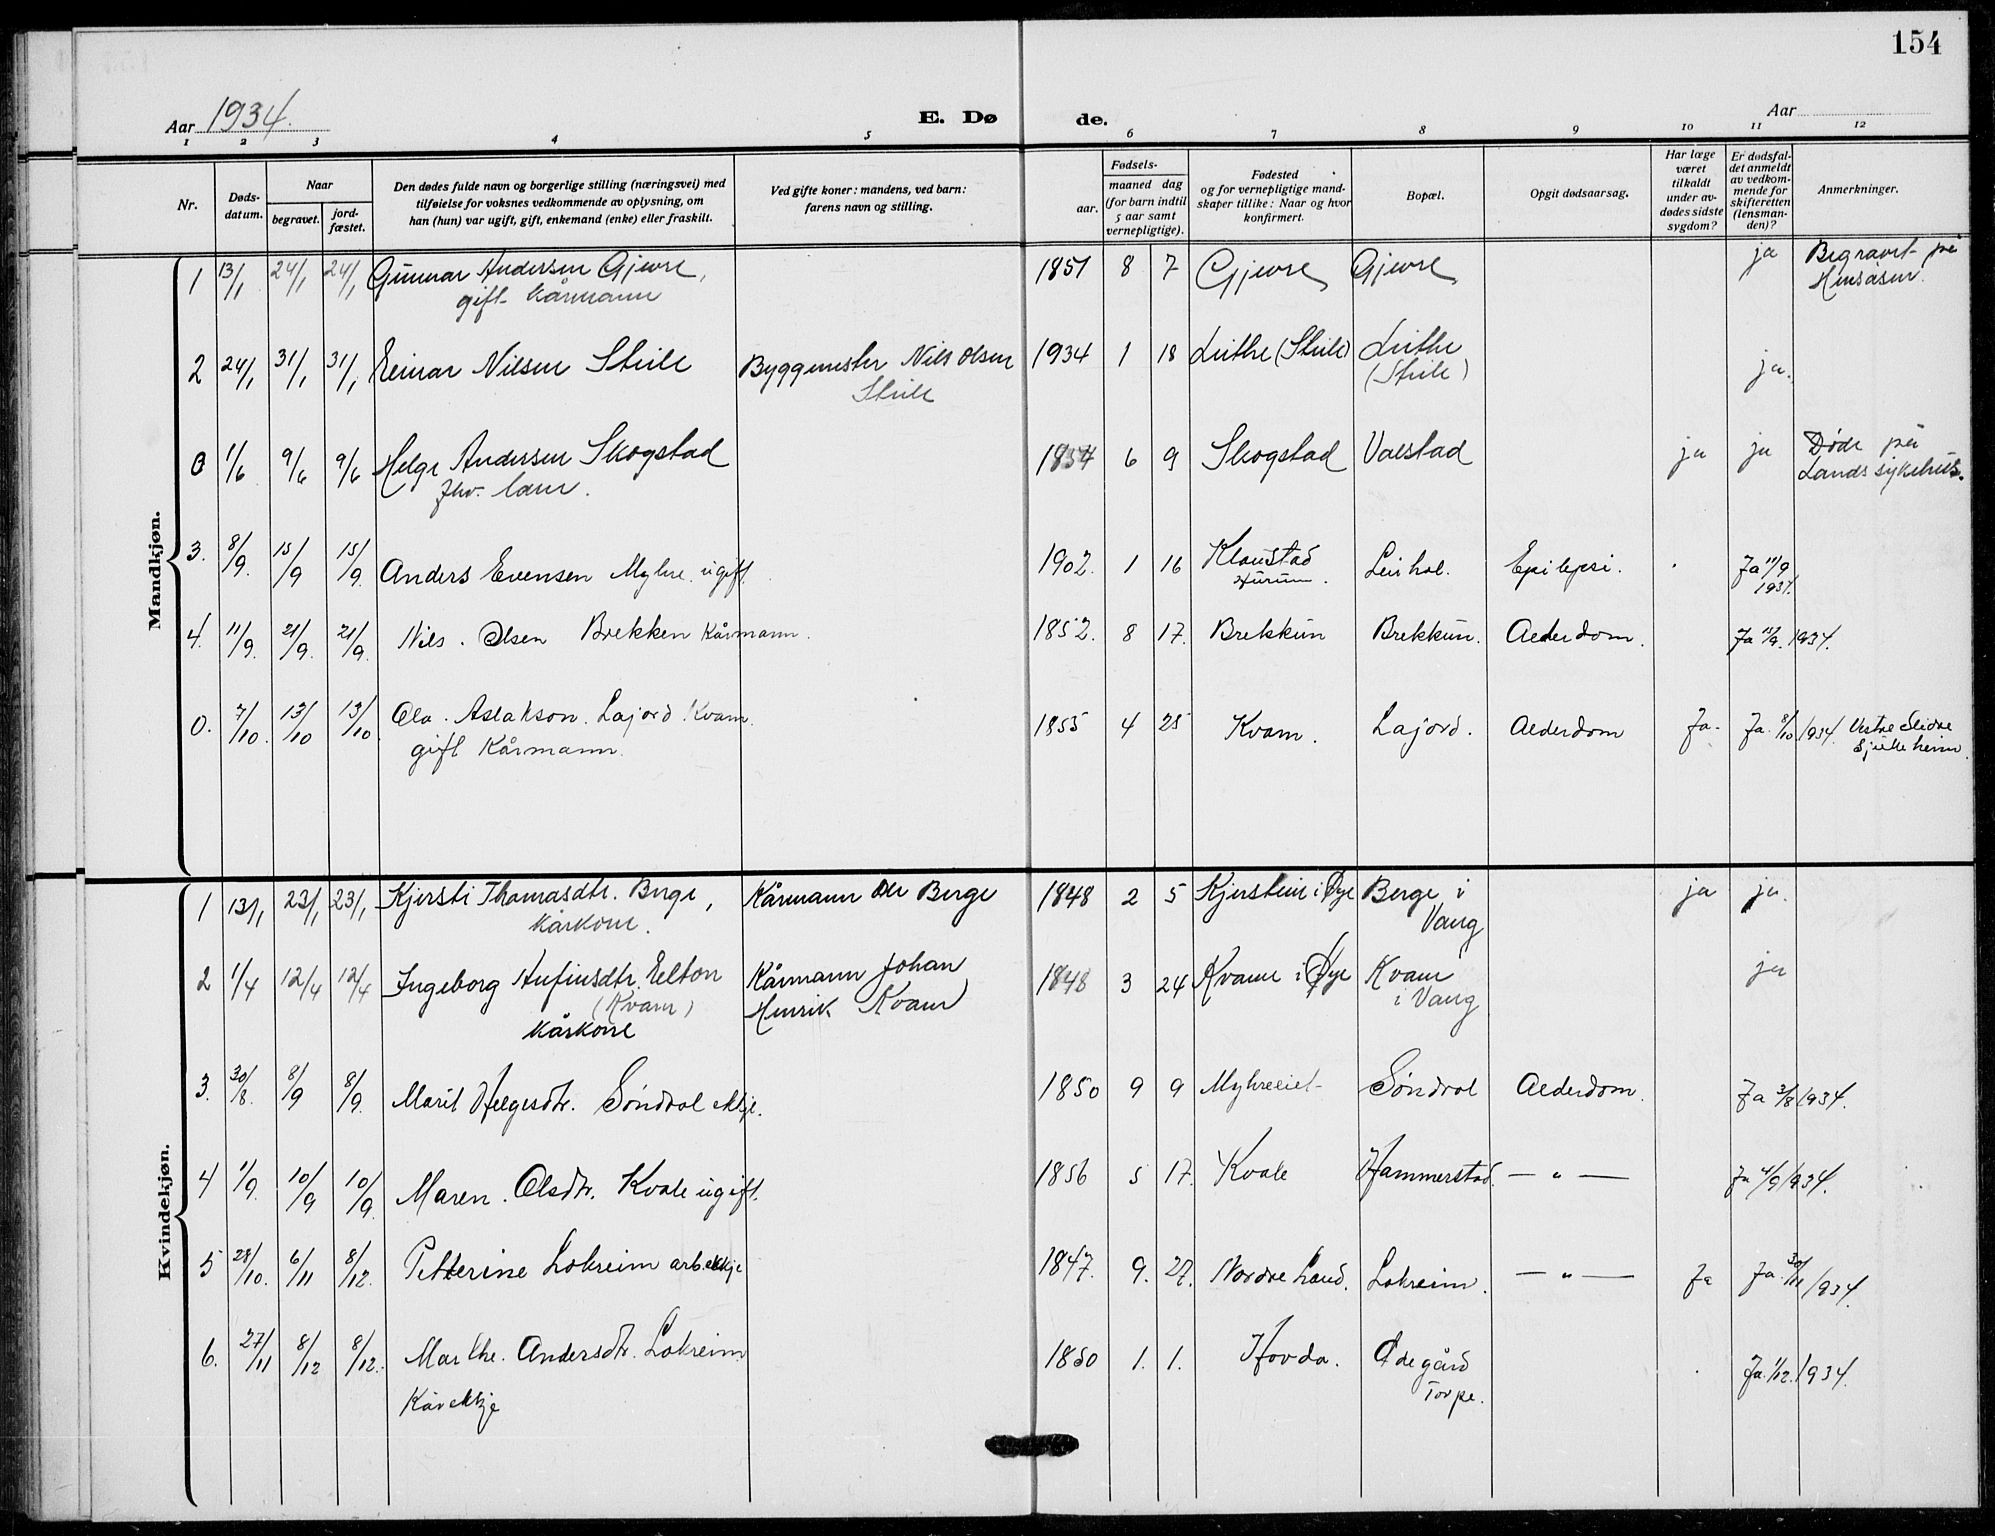 154
Aar 1934.
E. Dø de.
Aar
1 2 3 4 5 6 7 8 9 10 11 12
Nr.
Døds-
datum.
Naar
begravet.
jord-
fæstet.
Den dødes fulde navn og borgerlige stilling (næringsvei) med
tilføielse for voksnes vedkommende av oplysning, om
han (hun) var ugift, gift, enkemand (enke) eller fraskilt.
Ved gifte koner: mandens, ved barn:
farens navn og stilling.
Fødsels-
aar.
maaned dag
(for barn indtil
5 aar samt
vernepligtige).
Fødested
og for vernepligtige mand-
skaper tillike: Naar og hvor
konfirmert.
Bopæl.
Opgit dødsaarsag.
Har læge
været
tilkaldt
under av-
dødes sidste
sygdom?
Er dødsfal-
det anmeldt
av vedkom-
mende for
skifteretten
(lensman-
den)?
Anmerkninger.
Mandkjøn.
1 13/1 24/1 24/1 Gunnar Andersen Gjevre, 1851 8 7 Gjevre Gjevre ja Begravet på
gift kårmann
2 24/1 31/1 31/1 Einar Nilsen Strile Byggmester Nils Olsen 1934 1 18 Leithe (Strile) Leithe ja.
Strile (Strile)
0 1/6 9/6 9/6 Helge Andersen Skogstad 1854 6 9 Skogstad Valstad ja ja Døde på
Landssykehus.
3. 8/9. 15/9 15/9. Anders Evensen Myhre ugift. 1902. 1 16 Klaustad Leirhol. Epilepsi. Ja 11/9
Hurum. 1934.
4. 11/9. 21/9. 21/9. Nils. Olsen Brekken Kårmann. 1852. 8 17. Brekkun Brekkun. Alderdom. Ja 11/9. 1934.
0. 7/10. 13/10 13/10. Ola. Aslakson. Lajord Kvam. 1855 4 25 Kvam. Lajord. Alderdom Ja. Ja. 8/10 1934. Vestre Slidre
gift Kårmann. Sjukeheim.
Kvindekjøn.
1 13/1 23/1 23/1 Kjersti Thomasdtr. Berge, Kårmann Ole Berge 1848 2 5 Kjerstein i Øye Berge i ja ja.
kårkone. Vang
2 1/4 12/4 12/4 Ingeborg Anfinsdtr. Elton Kårmann Johan 1848 3 24 Kvame i Øye Kvam ja
(Kvam) Henrik Kvam i Vang
kårkone
3. 30/8. 8/9 8/9. Marit Helgesdtr. Söndrol ekkje. 1850 9 9 Myhreeiet Söndrol Alderdom. Ja 3/8 1934.
4 1/9. 10/9 10/9. Maren. Olsdtr. Kvale ugift. 1856 5 17. Kvale Hammerstad. — " — Ja 4/9 1934.
5 28/10. 6/11 8/12. Petterine Lokreim arb. ekkje 1847. 9. 27. Nordre Land. Lokreim. — " — Ja Ja. 30/11 1934.
6. 27/11 8/12 8/12. Marthe. Andersdtr. Lokreim. 1850 1. 1. Hovda. Ødegård Ja. 1/12. 1934.
Kårekkje Torpe.